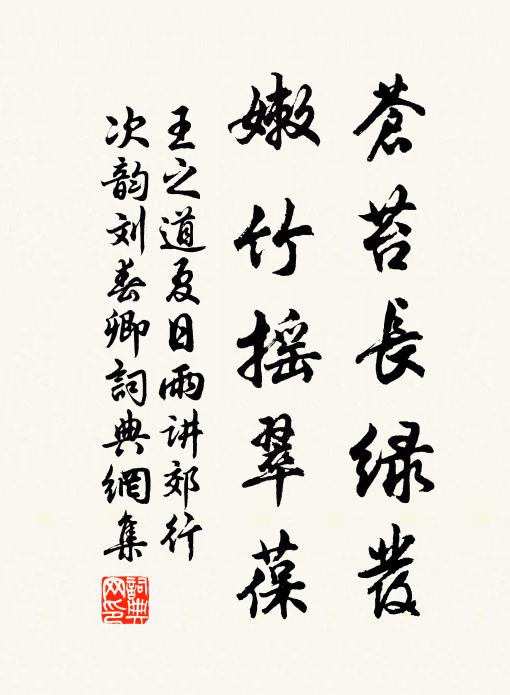 蒼苔長绿發
嫩竹摇翠葆
王之道夏日雨讲郊行
次韵刘春卿詞典網集
詞典网印